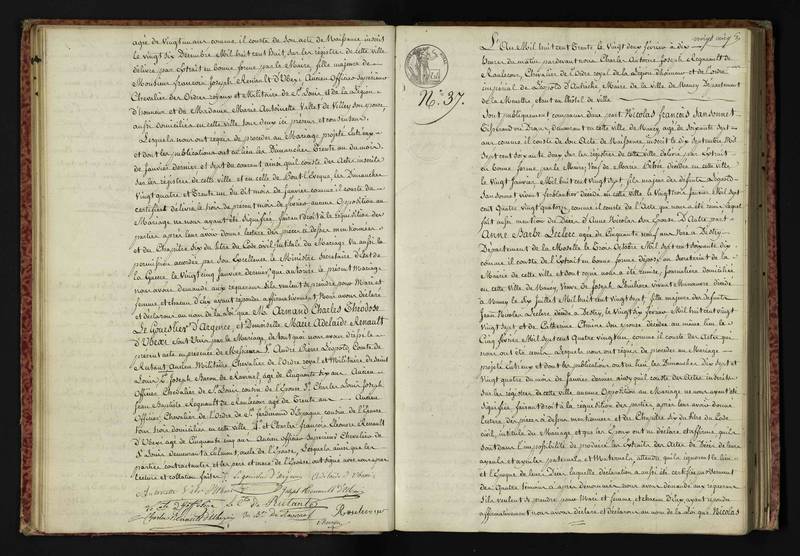 agée de Vingt un ans comme il conste de son acte de Naissance inscrit
le vingt six Décembre Mil huit cent huit, sur les régistres de cette ville
délivré par Extrait en bonne forme par le Maire, fille majeure de
Monsieur françois Joseph Renault d'Ubexi Ancien Officier Supérieur
Chevalier des Ordres royaux et Militaire de St Louis et de la Légion
d'honneur et de Madame Marie Antoinette Vallet de Villey son épouse,
aussi domiciliés en cette ville, tous deux ici présens et consentans.
Lesquels nous ont requis de procéder au Mariage projeté entr'eux
et dont les publications ont eu lieu les Dimanches Trente un du mois
de janvier dernier et sept du courant ainsi qu'il conste des actes inscrits
sur les régistres de cette ville et en celle de Pont l'Evêque, les Dimanches
Vingt quatre et Trente un du dit mois de janvier comme il conste du
certificat délivré, le trois du présent mois de février aucune Opposition au
Mariage ne nous ayant été Signifiée, faisant droit à la réquisition des
parties après leur avoir donné lecture des pièces ci dessus mentionnées
et du Chapitre Six du titre du Code civil, intitulé du Mariage. Vu aussi la
permission accordée par son Excellence le Ministre Secretaire d'Etat de
la Guerre, le Vingt cinq janvier dernier, qui autorise le présent Mariage
nous avons demandé aux requérans s'ils veulent se prendre pour Mari et
femme, et chacun d'Eux ayant répondu affirmativement Nous avons déclaré
et déclarons au nom de la loi que Mr. Armand Charles Théodose
Le Gouestier d'Argence, et Demoiselle Marie Adelaïde Renault
d'Ubexi sont Unis par le Mariage, de tout quoi nous avons dressé le
présent acte en présence de Messieurs St. André Pierre Léopold Comte de
Rutant Ancien Militaire Chevalier de l'Ordre royal et Militaire de Saint
Louis, Joseph Baron de Ravinel, agé de Cinquante six ans Ancien
Officier Chevalier de St Louis cousin de l'Epouse. St Charles Louis Joseph
Jean Baptiste Regnault de Raulecour agé de Trente ans Ancien
Officier Chevalier de l'Ordre de St ferdinand d'Espagne cousin de l'Epouse
tous trois domiciliés en cette ville, et Charles François Léonard Renault
d'Ubexi agé de Cinquante cinq ans Ancien Officier Supérieur Chevalier de
St Louis demeurant à oncle de l'Epouse, Lesquels ainsi que les
parties contractantes et les père et mère de l'Epouse, ont signé avec nous après
lecture et collation faites.
vingt cinq
N° 37.
L'An Mil huit cent Trente le Vingt deux février à dix
heures du matin pardevant nous Charles Antoine Joseph Regnault de
Raulecour, Chevalier de l'Ordre royal de la Légion d'honneur et de l'ordre
impérial de Léopold d'Autriche, Maire de la Ville de Nancy Département
de la Meurthe étant en l'hôtel de Ville
Sont publiquement comparus d'une part Nicolas françois Sansonnet
Tisserand en Draux, demeurant en cette ville de Nancy, agé de Soixante sept
ans comme il conste de son Acte de Naissance, inscrit le dix septembre Mil
sept cent soixante deux sur les régistres de cette ville, délivré par Extrait
en bonne forme, par le Maire, Veuf de Marie décédée en cette ville
le Vingt janvier Mil huit cent vingt sept, fils majeur des défunts Léopold
Sansonnet vivant décédé en cette ville le Vingt trois janvier Mil sept
cent quatre vingt quatorze, comme il conste de l'Acte qui nous a été remis lequel
fait aussi mention du Décès d'Anne Nicolas son épouse. D'autre part
Anne Barbe Leclerc agée de Cinquante neuf ans Née à Destry
Département de la Moselle le Trois Octobre Mil sept cent soixante dix
comme il conste de l'Extrait en bonne forme déposé au Secrétariat de la
Mairie de cette ville et dont copie nous a été remise, journalière domiciliée
en cette ville de Nancy, Veuve de Joseph vivant Manoeuvre décédé
à Nancy le six juillet Mil huit cent vingt sept, fille majeure des défunts
Jean Nicolas Leclerc décédé à Destry, le Vingt six février Mil huit cent vingt
Vingt sept et de Catherine son épouse décédée au même lieu le
Cinq février Mil sept cent Quatre vingt un, comme il conste des actes qui
nous ont été remis. Lesquels nous ont requis de procéder au Mariage
projeté Entr'eux et dont les publications ont eu lieu les Dimanches Dix sept et
Vingt quatre du mois de janvier dernier ainsi qu'il conste des Actes inscrits
sur les régistres de cette ville, aucune Opposition au Mariage ne nous ayant été
Signifiée faisant droit à la réquisition des parties, après leur avoir donné
lecture des pièces ci dessus mentionnées et du Chapitre Six du titre du Code
civil, intitulé du Mariage et que les Epoux ont eu déclaré et affirmé qu'ils
sont dans l'impossibilité de produire les Extraits des Actes de Décès de leurs
ayeuls et ayeules paternels et Maternels, attendu qu'ils ignorent le lieu
et l'Epoque de leur Décès, laquelle déclaration a aussi été certifiée par Serment
des Quatre témoins ci après dénommés nous avons demandé aux requérans
S'ils veulent se prendre pour Mari et femme et chacun d'Eux ayant répondu
affirmativement nous avons déclaré et déclarons au nom de la Loi que Nicolas